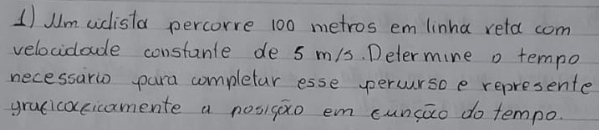 1) Um ciclista percorre 100 metros em linha reta com
velocidade constante de 5 m/s. Determine o tempo
necessário para completar esse percurso e represente
graficaficamente a posição em função do tempo.